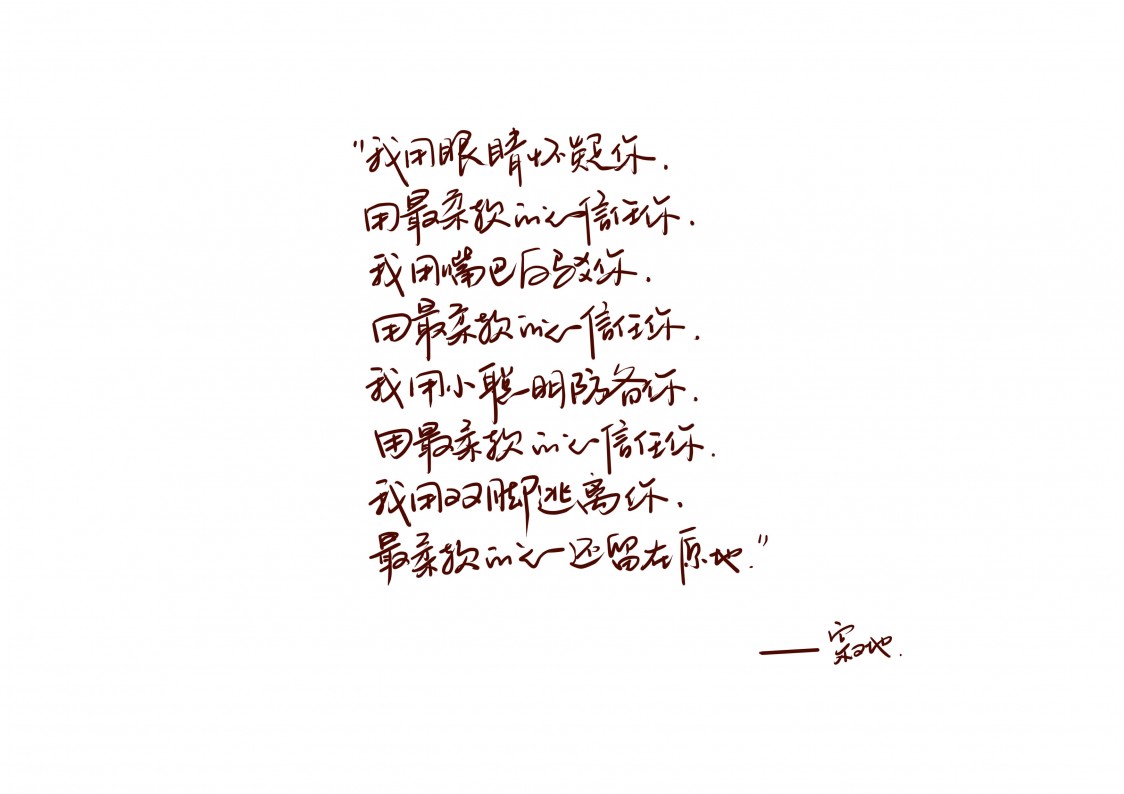 "我用眼睛怀疑你.
用最柔软的心信任你.
我用嘴巴反驳你.
用最柔软的心信任你.
我用小聪明防备你.
用最柔软的心信任你.
我用双脚逃离你.
最柔软的心还留在原地."
——寂地.